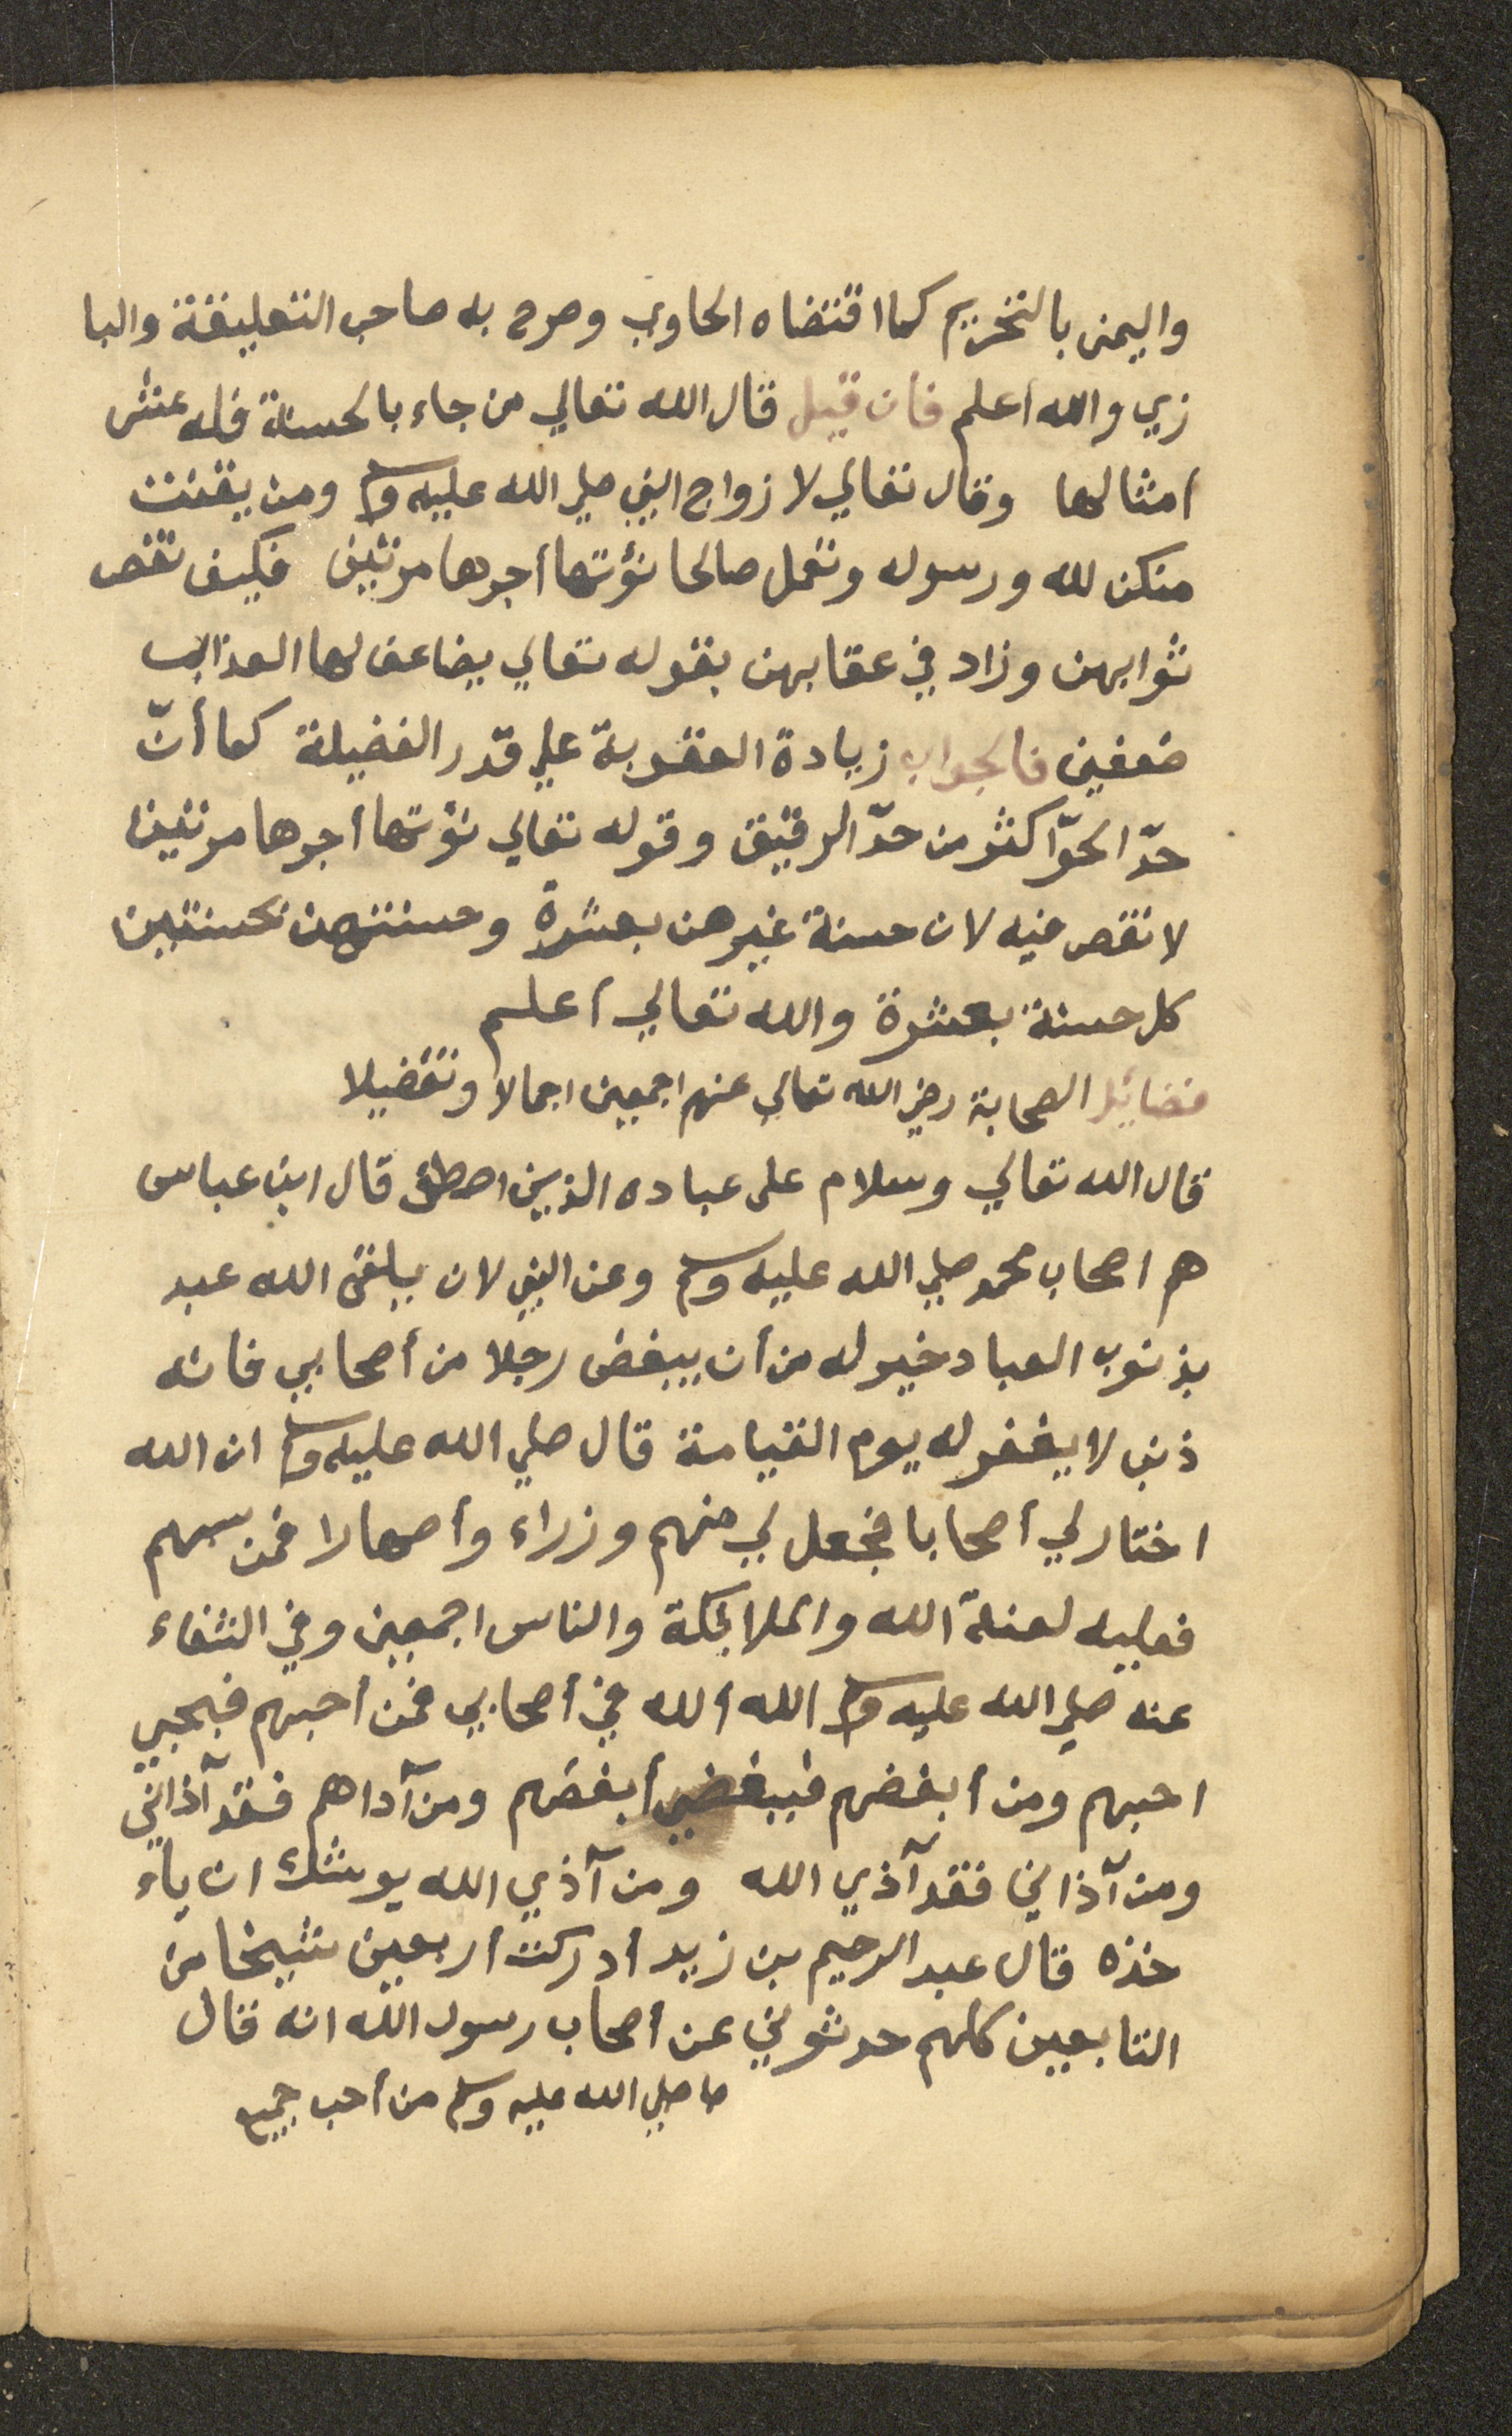 واليمن بالتحريم كما اقتضاه الحاوي وصرح به صاحب التعليقة والبا
زري والله أعلم فان قيل قال الله تعالي من جاء بالحسنة فله عشر
أمثالها وقال تعالي لازواج النبي صلي الله عليه وسلم ومن يقنت
منكن لله ورسوله وتعمل صالحا نؤتها أجرها مرتين فكيف نقص
ثوابهن وزاد في عقابهن بقوله تعالي يضاعف لها العذاب
ضعفين فالجواب زيادة العقوبة علي قدر الفضيلة كما أنّ
حدّ الحرّ اكثر من حدّ الرقيق وقوله تعالي نؤتها أجرها مرتين
لا نقص فيه لان حسنة غيرهن بعشرة وحسنتهن بحسنتين
كل حسنة بعشرة والله تعالي أعلم
فضائل الصحابة رضي الله تعالي عنهم اجمعين اجمالا وتفضيلا
قال الله تعالي وسلام على عباده الذين اصطفى قال ابن عباس
هم اصحاب محمد صلي الله عليه وسلم وعن النبي لان يلقى الله عبد
بذنوب العباد خير له من أن يبغض رجلا من أصحابي فانه
ذنب لا يغفر له يوم القيامة قال صلي الله عليه وسلم ان الله
اختار لي أصحابا فجعل لي منهم وزراء وأصهارا فمن سبهم
فعليه لعنة الله والملائكة والناس اجمعين وفي الشفاء
عنه صلي الله عليه وسلم الله ألله في أصحابي فمن أحبهم فبحبي
احبهم ومن أبغضهم فببغضي أبغضهم ومن آداهم فقد آذاني
ومن آذاني فقد آذي الله ومن آذي الله يوشك ان يأ
خذه قال عبد الرحيم بن زيد أدركت أربعين شيخا من
التابعين كلهم حدثوني عن أصحاب رسول الله انه قال
صلي الله عليه وسلم من أحب جميع